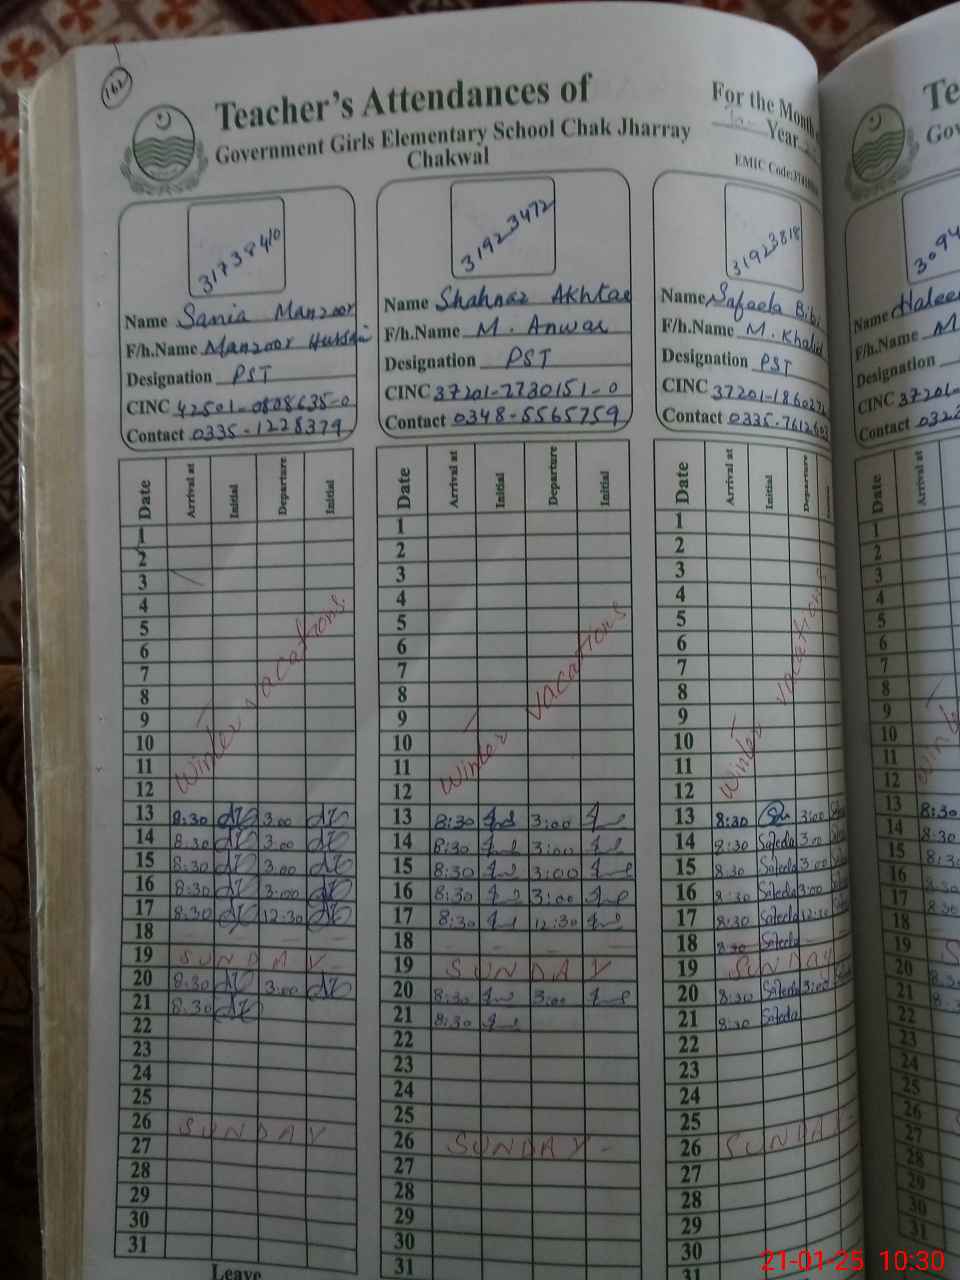 162
Teacher's Attendances of
For the Month
Government Girls Elementary School Chak Jharray
Year
Chakwal
EMIC Code:
31738410
Name Sania Manzoor
F/h.Name Manzoor Hussain
Designation PST
CINC 42501-0808635-0
Contact 0335-1228379
Date Arrival at Initial Departure Initial
1
2
3
4
5
6
7
8
9
10
11
12
Winter vacations
13 8:30 3:00
14 8:30 3:00
15 8:30 3:00
16 8:30 3:00
17 8:30 12:30
18
19 SUNDAY
20 8:30 3:00
21 8:30
22
23
24
25
26 SUNDAY
27
28
29
30
31
Leave
31923472
Name Shahnaz Akhtar
F/h.Name M. Anwar
Designation PST
CINC 37201-7730151-0
Contact 0348-5565759
Date Arrival at Initial Departure Initial
1
2
3
4
5
6
7
8
9
10
11
12
Winter vacations
13 8:30 3:00
14 8:30 3:00
15 8:30 3:00
16 8:30 3:00
17 8:30 12:30
18
19 SUNDAY
20 8:30 3:00
21 8:30
22
23
24
25
26 SUNDAY
27
28
29
30
31
31923818
Name Safeela Bibi
F/h.Name M. Khalid
Designation PST
CINC 37201-18602
Contact 0335-7612603
Date Arrival at Initial Departure
1
2
3
4
5
6
7
8
9
10
11
12
Winter vacations
13 8:30 3:00
14 8:30 3:00
15 8:30 3:00
16 8:30 3:00
17 8:30
18 8:30
19 SUNDAY
20 8:30 3:00
21 8:30
22
23
24
25
26 SUNDAY
27
28
29
30
31
3094
Name Haleem
F/h.Name M
Designation
CINC 37201-
Contact 032
Date Arrival at
1
2
3
4
5
6
7
8
9
10
11
12
Winter
13 8:30
14 8:30
15 8:30
16 8:30
17 8:30
18
19 S
20 8:30
21 8:3
22
23
24
25
26 S
27
28
29
30
31
21-01-25 10:30